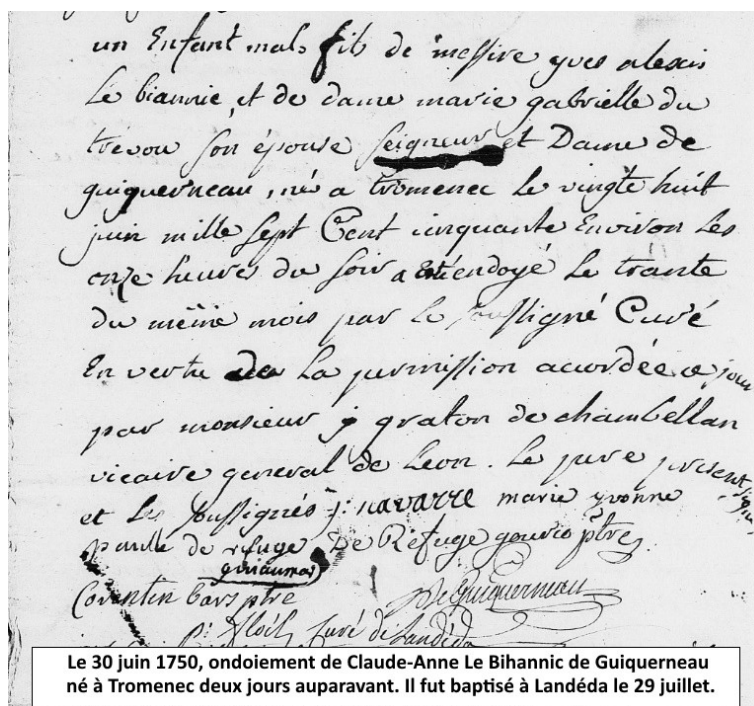 un Enfant mal fils de messire yves alexis
Le biannic, et de dame marie gabrielle du
trevou son épouse seigneur et Dame de
guiquerneau, né a tromenec Le vingte huit
juin mille sept Cent cinquante Environ Les
onze heures du soir a Eté endoyé Le trante
du même mois par Le soussigné Curé
En vertu de La permission accordée ce jour
par monsieur j graton de chambellan
vicaire general de Leon. Le pere present
et Les soussignés j: navarre marie yvonne
de refuge De Refuge gourio ptre
guiaumar
Corentin bars ptre De Guiquerneau
Curé de Landéda
Le 30 juin 1750, ondoiement de Claude-Anne Le Bihannic de Guiquerneau
né à Tromenec deux jours auparavant. Il fut baptisé à Landéda le 29 juillet.